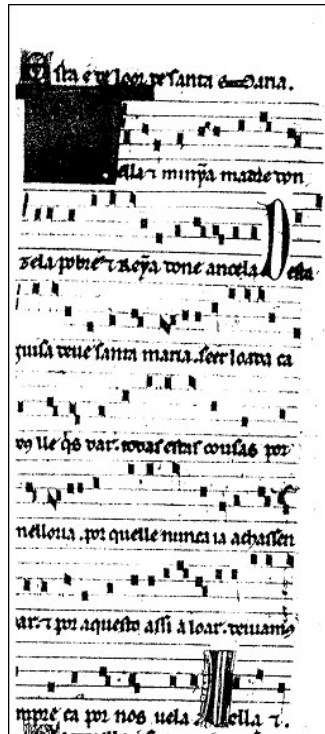 Esta e de loor de santa Maria.
ella τ minỹa madre don
zela pobre τ Reỹa done ancela Desta
guisa deue santa maria. seer loada ca
lle q̃s dar. todas estas cousas por
nelloria. por quelle nunca ia achassen
ar. τ por aquesto assi a loar. deuiamos
mpre ca por nos uela ella τ.